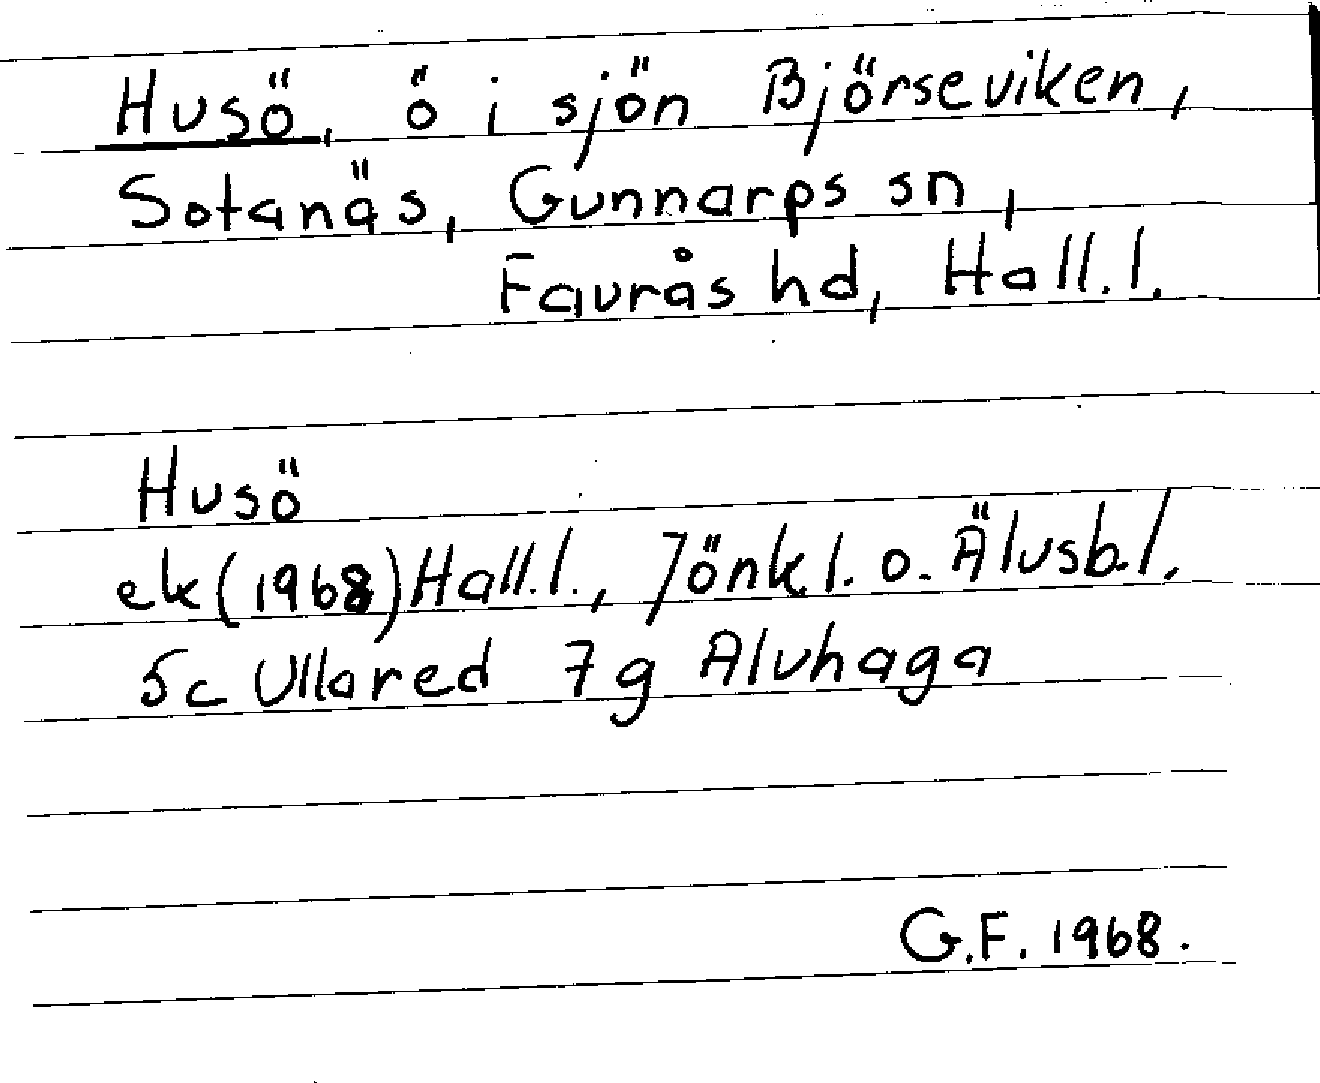 Husö, ö i sjön Björseviken,
Sotanäs, Gunnarps sn,
Faurås hd, Hall.l.
Husö
ek (1968) Hall.l., Jönk.l. o. Älvsb.l.
5c Ullared 7g Alvhaga
G.F. 1968.